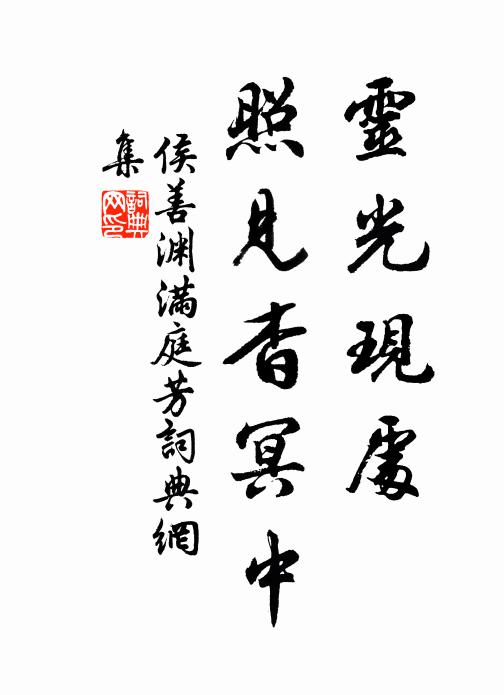 靈光現處
照見杳冥中
侯善渊滿庭芳詞典網
集
詞典
网印